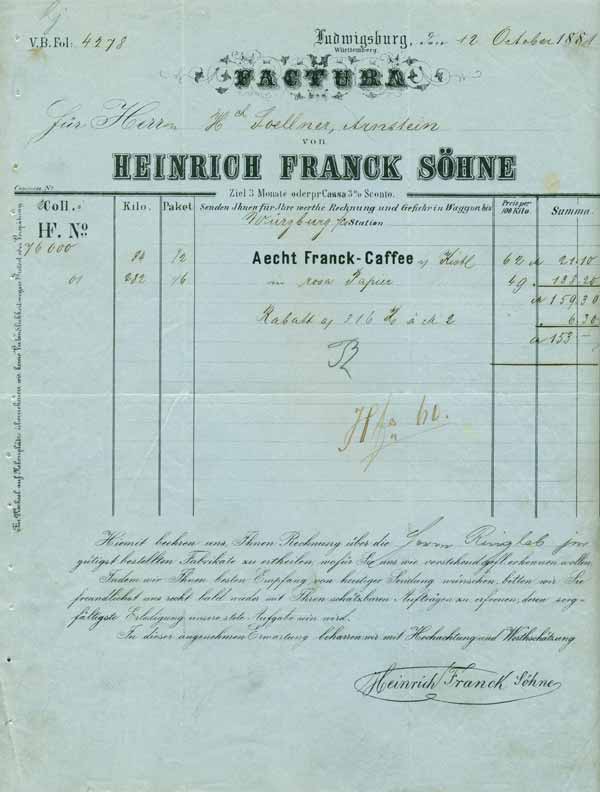 V. B. Fol: 4278
Ludwigsburg, den 12 October 1881
Württemberg.
FACTURA
für Herrn Hch Zoellner, Arnstein
von
HEINRICH FRANCK SÖHNE
Ziel 3 Monate oder pr Cassa 3% Sconto.
Coll. Kilo. Paket Senden Ihnen für Ihre werthe Rechnung und Gefahr in Waggon bis Preis per 100 Kilo. Summa
HF. No Würzburg Station
76000 34 1/2 Aecht Franck-Caffee Kistl 62 21.10
01 282 16 in rosa Papier 49 138.20
159.30
Rabatt a/ 316 K à M 2 6.30
153.—
60.
Hiemit beehren uns, Ihnen Rechnung über die Herrn Ringlet jr
gütigst bestellten Fabrikate zu ertheilen, wofür Sie uns wie vorstehend gefl. erkennen wollen.
Indem wir Ihnen besten Empfang von heutiger Sendung wünschen, bitten wir Sie
freundlichst uns recht bald wieder mit Ihren schätzbaren Aufträgen zu erfreuen, deren sorg-
fältigste Erledigung unsere stete Aufgabe sein wird.
In dieser angenehmen Erwartung beharren wir mit Hochachtung und Werthschätzung
Heinrich Franck Söhne